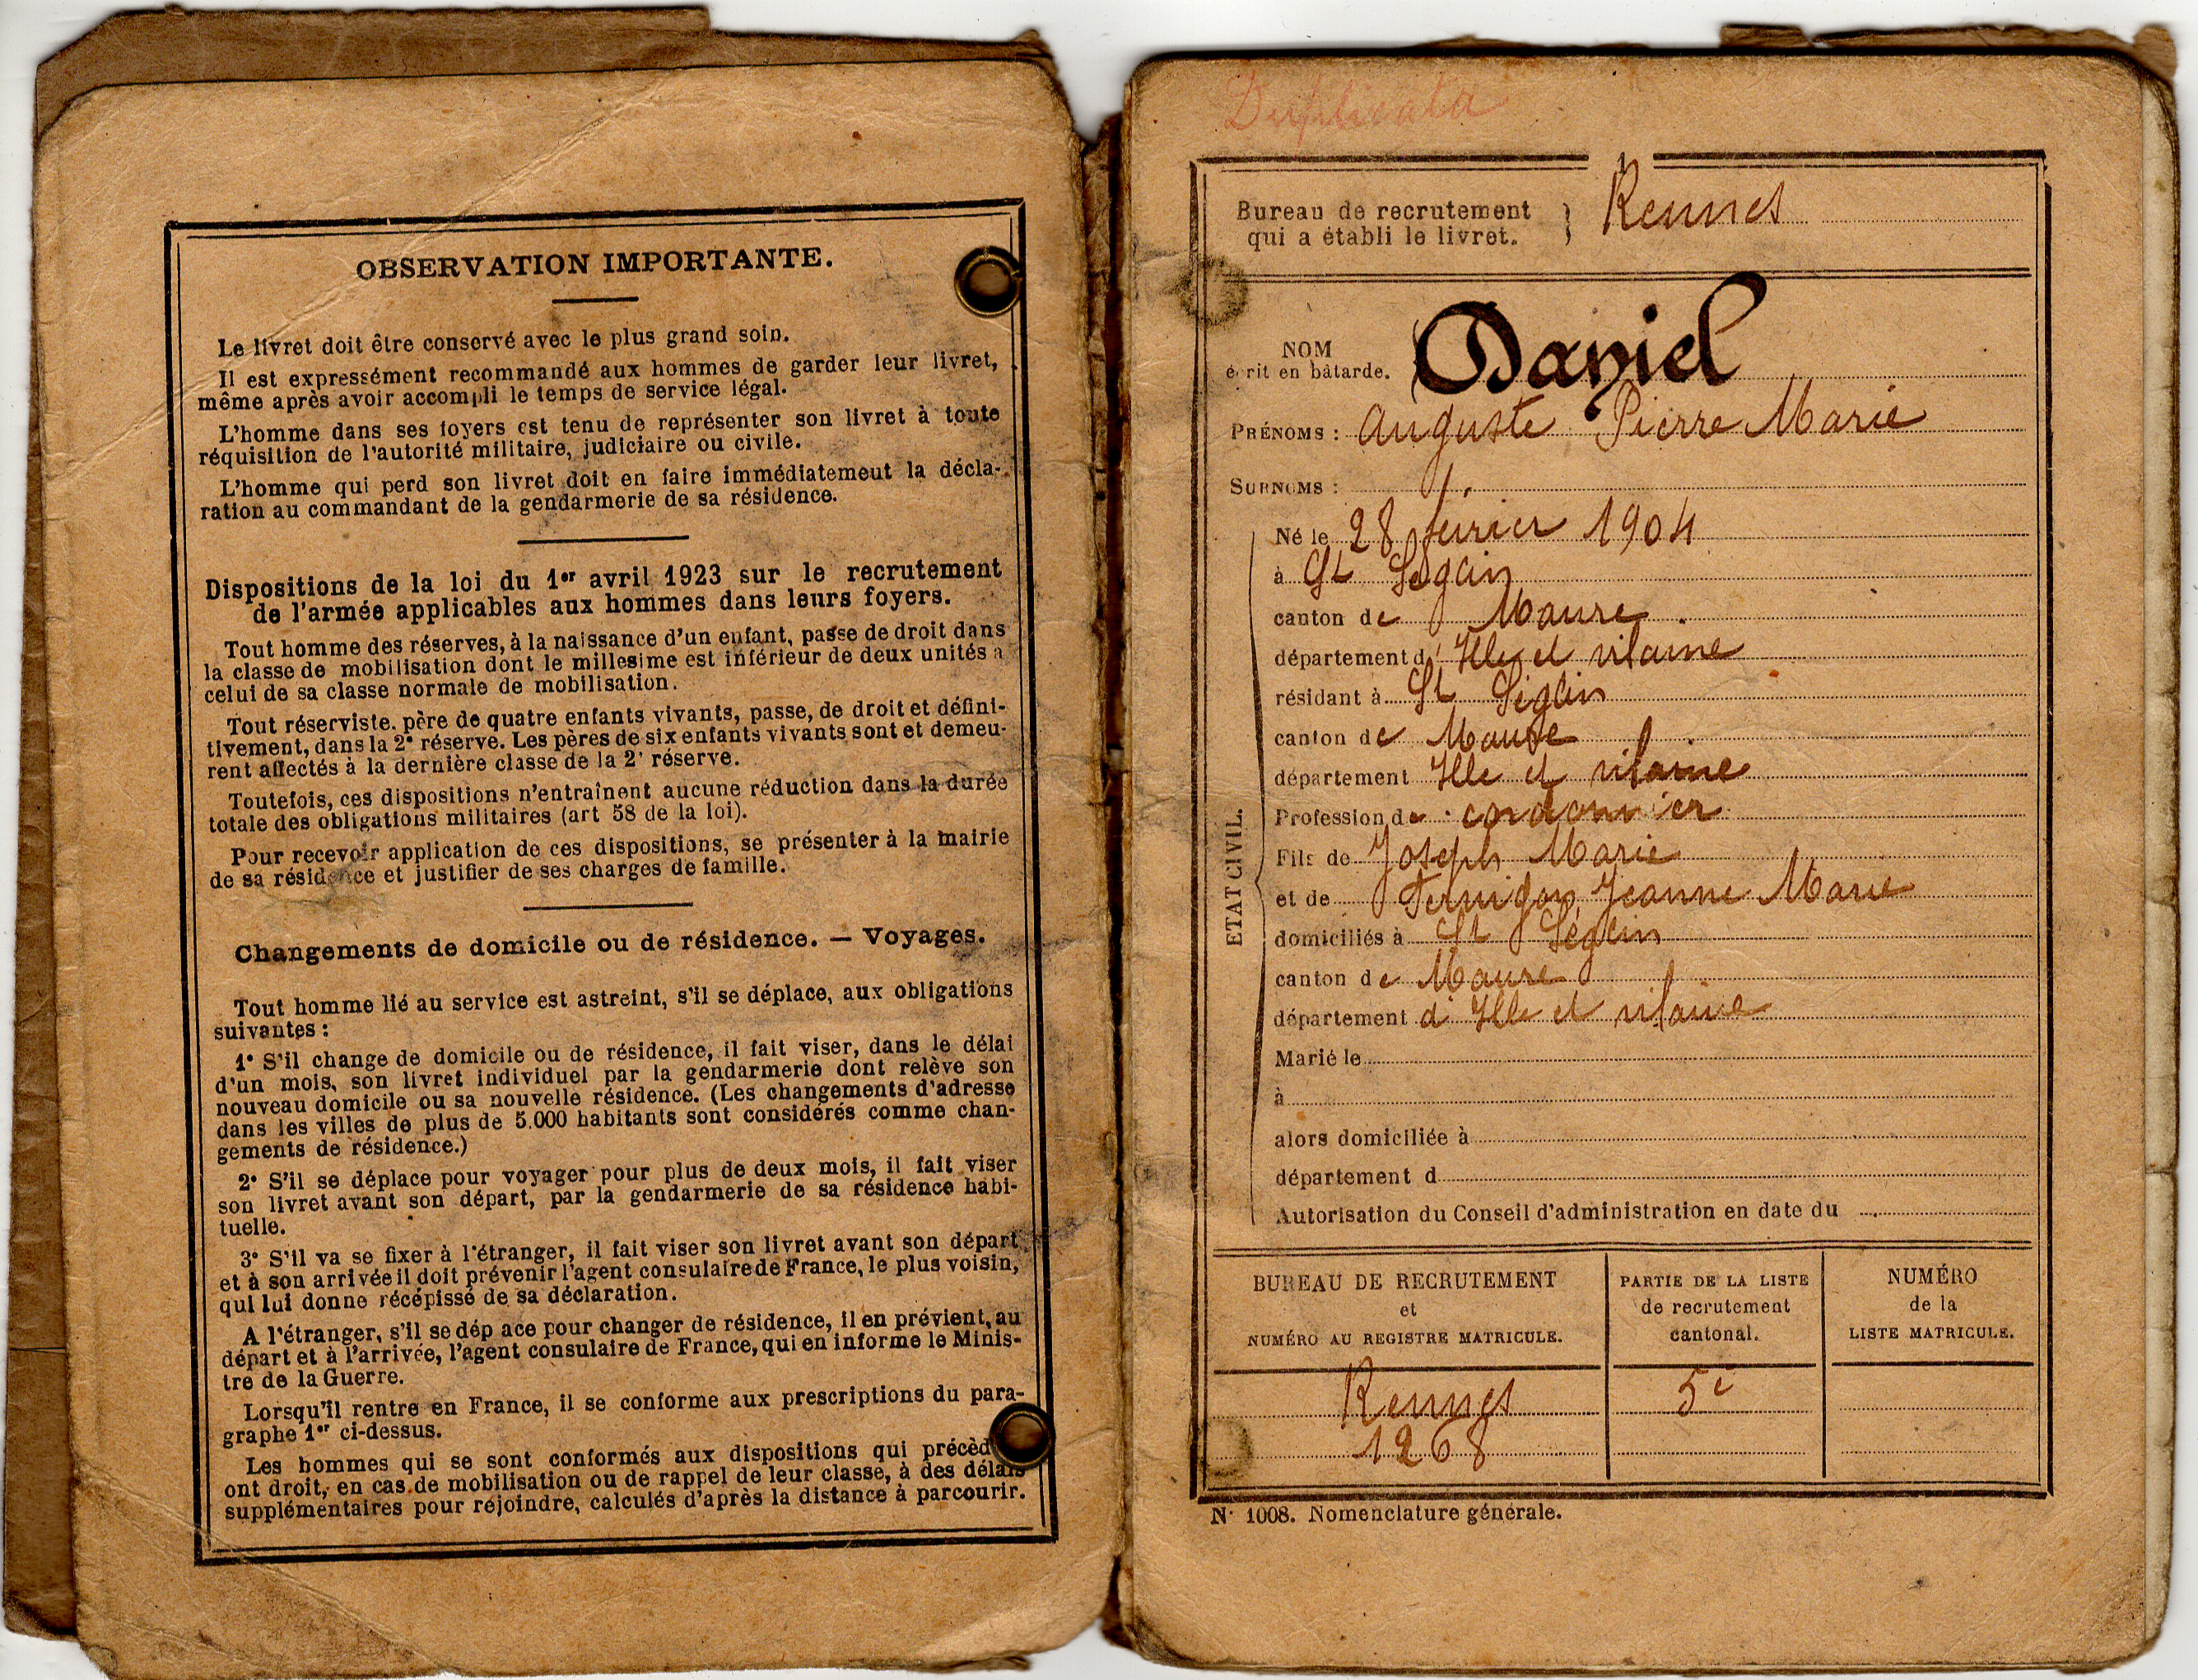 OBSERVATION IMPORTANTE.
Le livret doit être conservé avec le plus grand soin.
Il est expressément recommandé aux hommes de garder leur livret,
même après avoir accompli le temps de service légal.
L'homme dans ses foyers est tenu de représenter son livret à toute
réquisition de l'autorité militaire, judiciaire ou civile.
L'homme qui perd son livret doit en faire immédiatement la décla-
ration au commandant de la gendarmerie de sa résidence.
Dispositions de la loi du 1er avril 1923 sur le recrutement
de l'armée applicables aux hommes dans leurs foyers.
Tout homme des réserves, à la naissance d'un enfant, passe de droit dans
la classe de mobilisation dont le millesime est inférieur de deux unités a
celui de sa classe normale de mobilisation.
Tout réserviste, père de quatre enfants vivants, passe, de droit et défini-
tivement, dans la 2e réserve. Les pères de six enfants vivants sont et demeu-
rent affectés à la dernière classe de la 2e réserve.
Toutefois, ces dispositions n'entraînent aucune réduction dans la durée
totale des obligations militaires (art 58 de la loi).
Pour recevoir application de ces dispositions, se présenter à la mairie
de sa résidence et justifier de ses charges de famille.
Changements de domicile ou de résidence. — Voyages.
Tout homme lié au service est astreint, s'il se déplace, aux obligations
suivantes :
1° S'il change de domicile ou de résidence, il fait viser, dans le délai
d'un mois, son livret individuel par la gendarmerie dont relève son
nouveau domicile ou sa nouvelle résidence. (Les changements d'adresse
dans les villes de plus de 5.000 habitants sont considérés comme chan-
gements de résidence.)
2° S'il se déplace pour voyager pour plus de deux mois, il fait viser
son livret avant son départ, par la gendarmerie de sa résidence habi-
tuelle.
3° S'il va se fixer à l'étranger, il fait viser son livret avant son départ
et à son arrivée il doit prévenir l'agent consulaire de France, le plus voisin,
qui lui donne récépissé de sa déclaration.
A l'étranger, s'il se dép ace pour changer de résidence, il en prévient, au
départ et à l'arrivée, l'agent consulaire de France, qui en informe le Minis-
tre de la Guerre.
Lorsqu'il rentre en France, il se conforme aux prescriptions du para-
graphe 1er ci-dessus.
Les hommes qui se sont conformés aux dispositions qui précèd
ont droit, en cas de mobilisation ou de rappel de leur classe, à des délais
supplémentaires pour rejoindre, calculés d'après la distance à parcourir.
Duplicata
Bureau de recrutement
qui a établi le livret. } Rennes
NOM
écrit en bâtarde. Daniel
PRÉNOMS : Auguste Pierre Marie
SURNOMS :
ETAT CIVIL.
Né le 28 février 1904
à St Séglin
canton de Maure
département d' Ille et vilaine
résidant à St Séglin
canton de Maure
département Ille et vilaine
Profession de cordonnier
Fils de Joseph Marie
et de Jeanne Marie
domiciliés à St Séglin
canton de Maure
département d' Ille et vilaine
Marié le
à
alors domiciliée à
département d
Autorisation du Conseil d'administration en date du
BUREAU DE RECRUTEMENT
et
NUMÉRO AU REGISTRE MATRICULE.
PARTIE DE LA LISTE
de recrutement
cantonal.
NUMÉRO
de la
LISTE MATRICULE.
Rennes
1268
5e
N° 1008. Nomenclature générale.